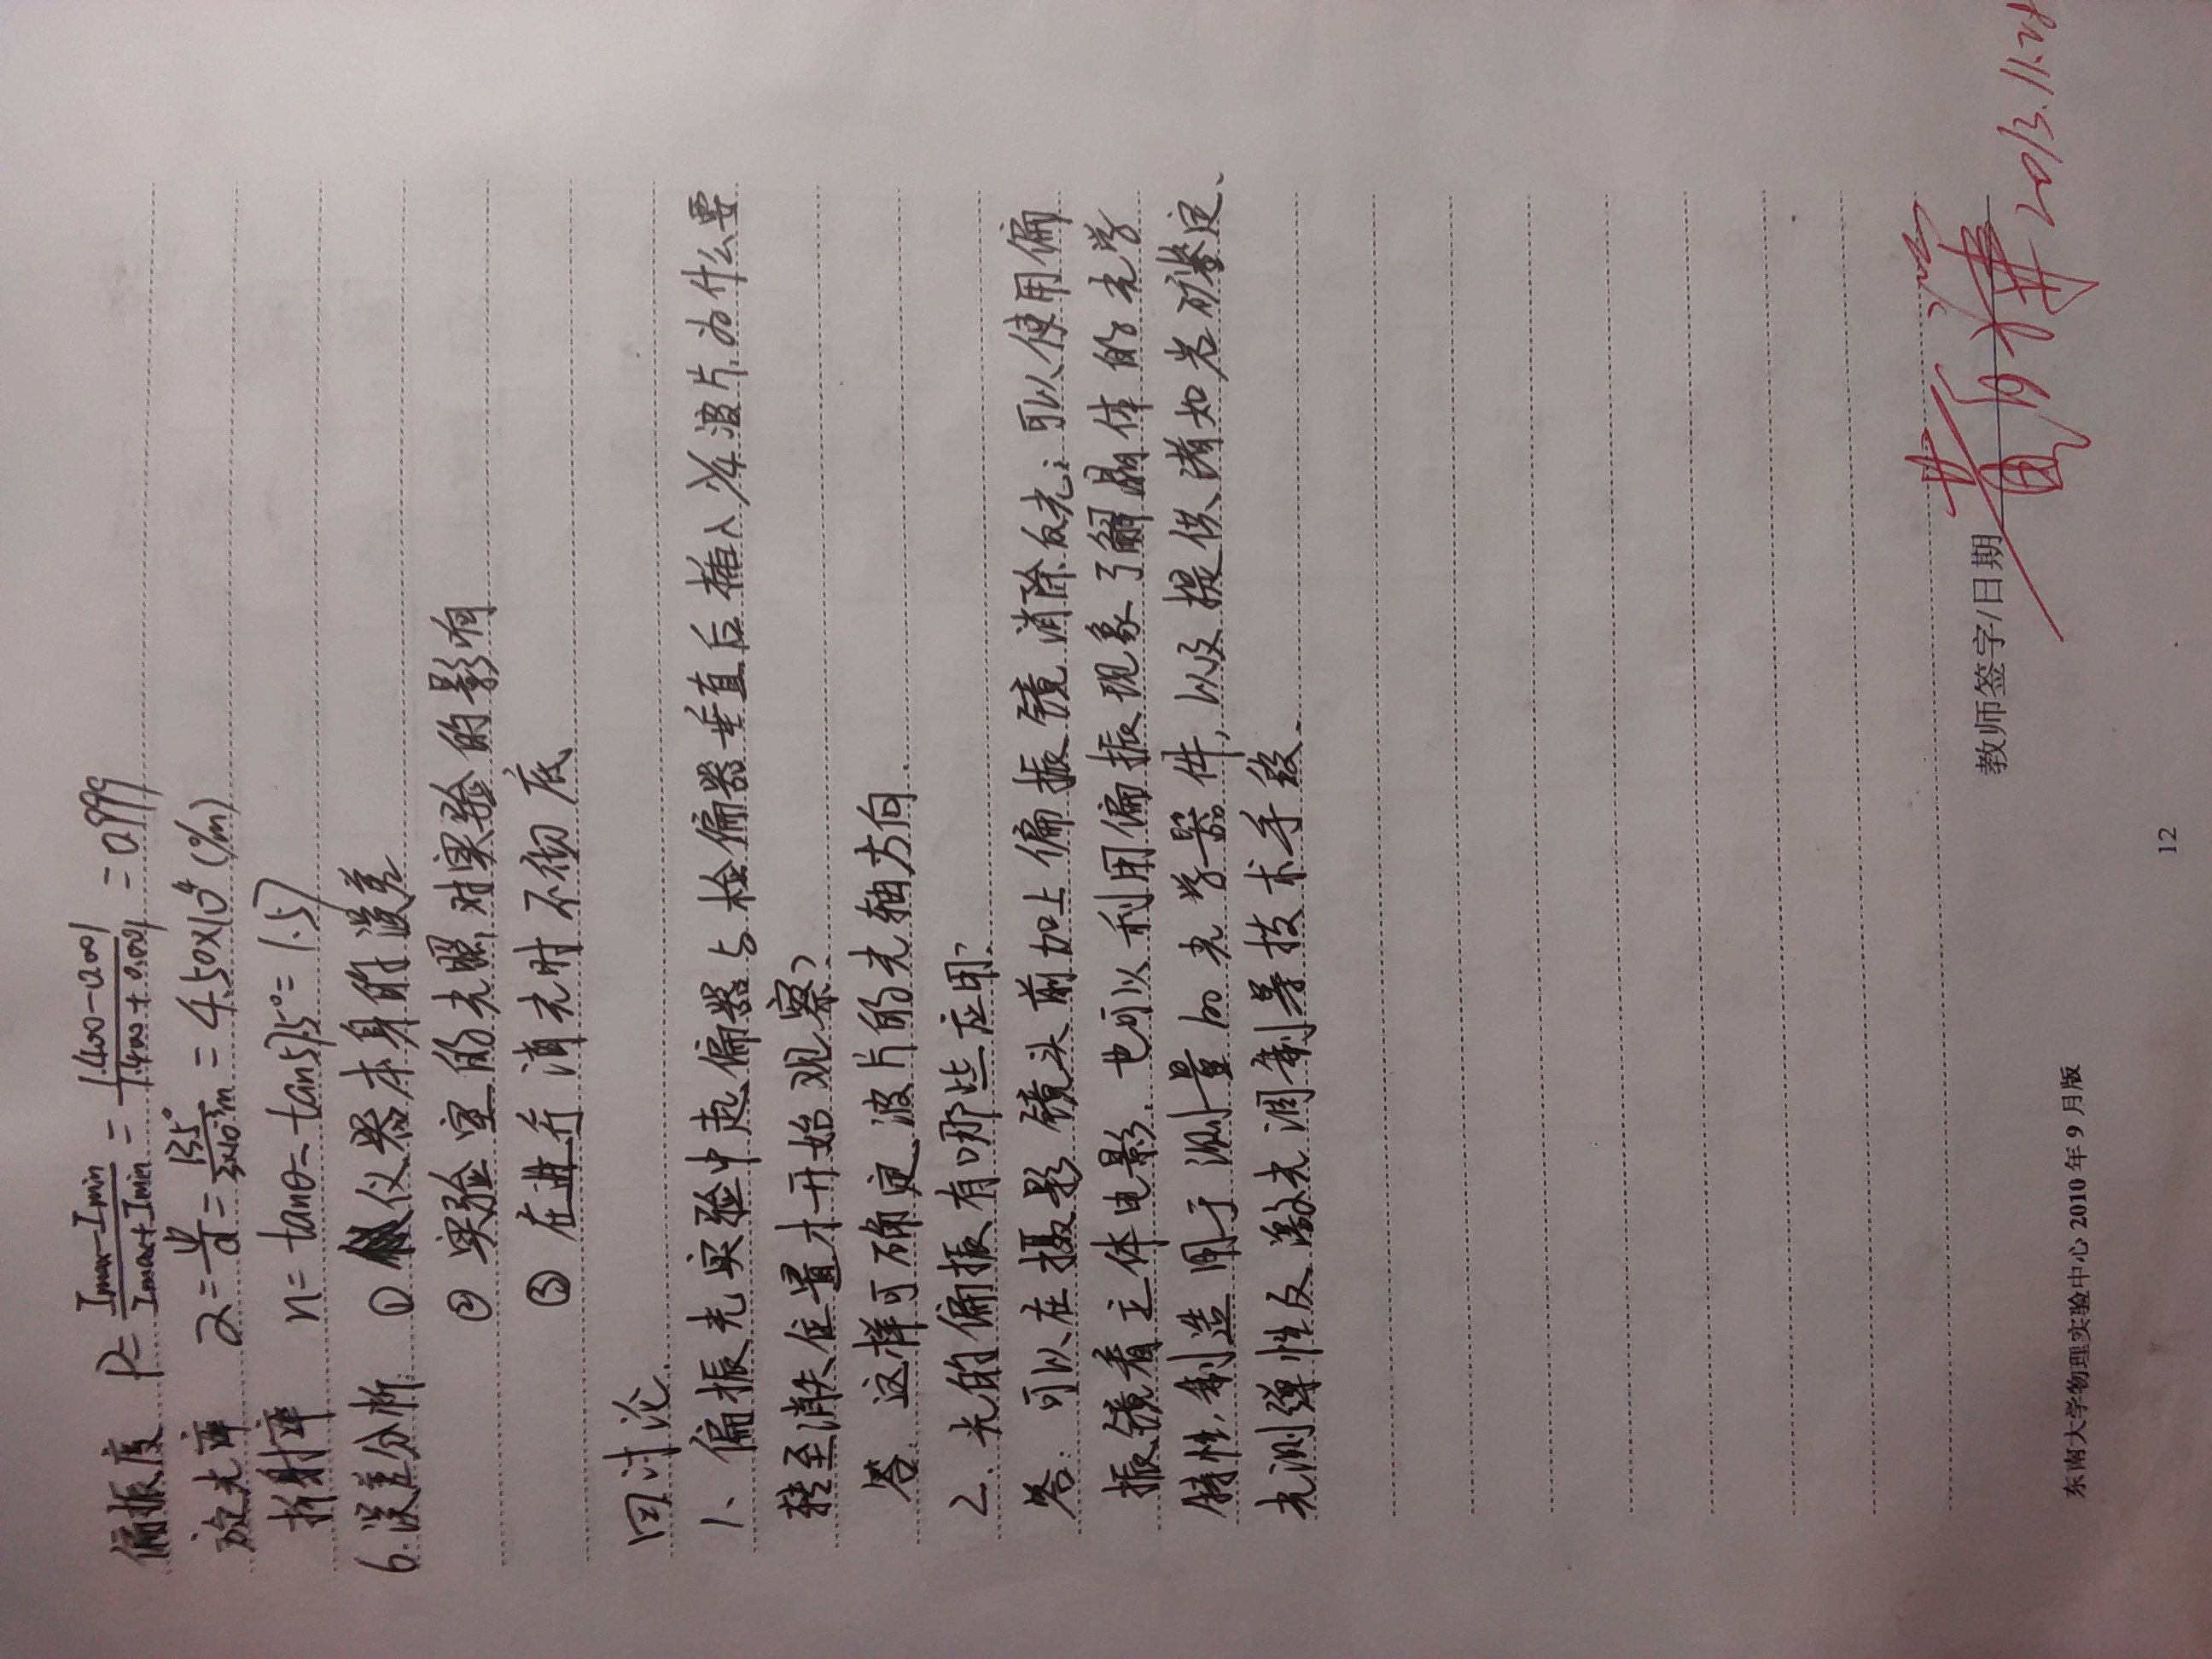 偏振度 P = (Imax - Imin)/(Imax + Imin) = (1.400 - 0.001)/(1.400 + 0.001) = 0.999
旋光率 α = φ/d = 135°/(3×10⁻³m) = 4.50×10⁴ (°/m)
折射率 n = tanθ = tan57.5° = 1.57
6.误差分析. ① 仪器本身的误差
② 实验室的光照,对实验的影响
③ 在进行消光时不彻底
回讨论.
1、偏振光实验中起偏器与检偏器垂直后插入1/4波片,为什么要
转至消失位置才开始观察?
答. 这样可确定波片的光轴方向.
2. 光的偏振有哪些应用?
答: 可以在摄影镜头前加上偏振镜消除反光; 可以使用偏
振镜看立体电影. 也可以利用偏振现象了解晶体的光学
特性,制造用于测量的光学器件,以及提供诸如岩矿鉴定、
光测弹性及激光调制等技术手段.
教师签字/日期
2013.11.28
东南大学物理实验中心 2010 年 9 月版
12